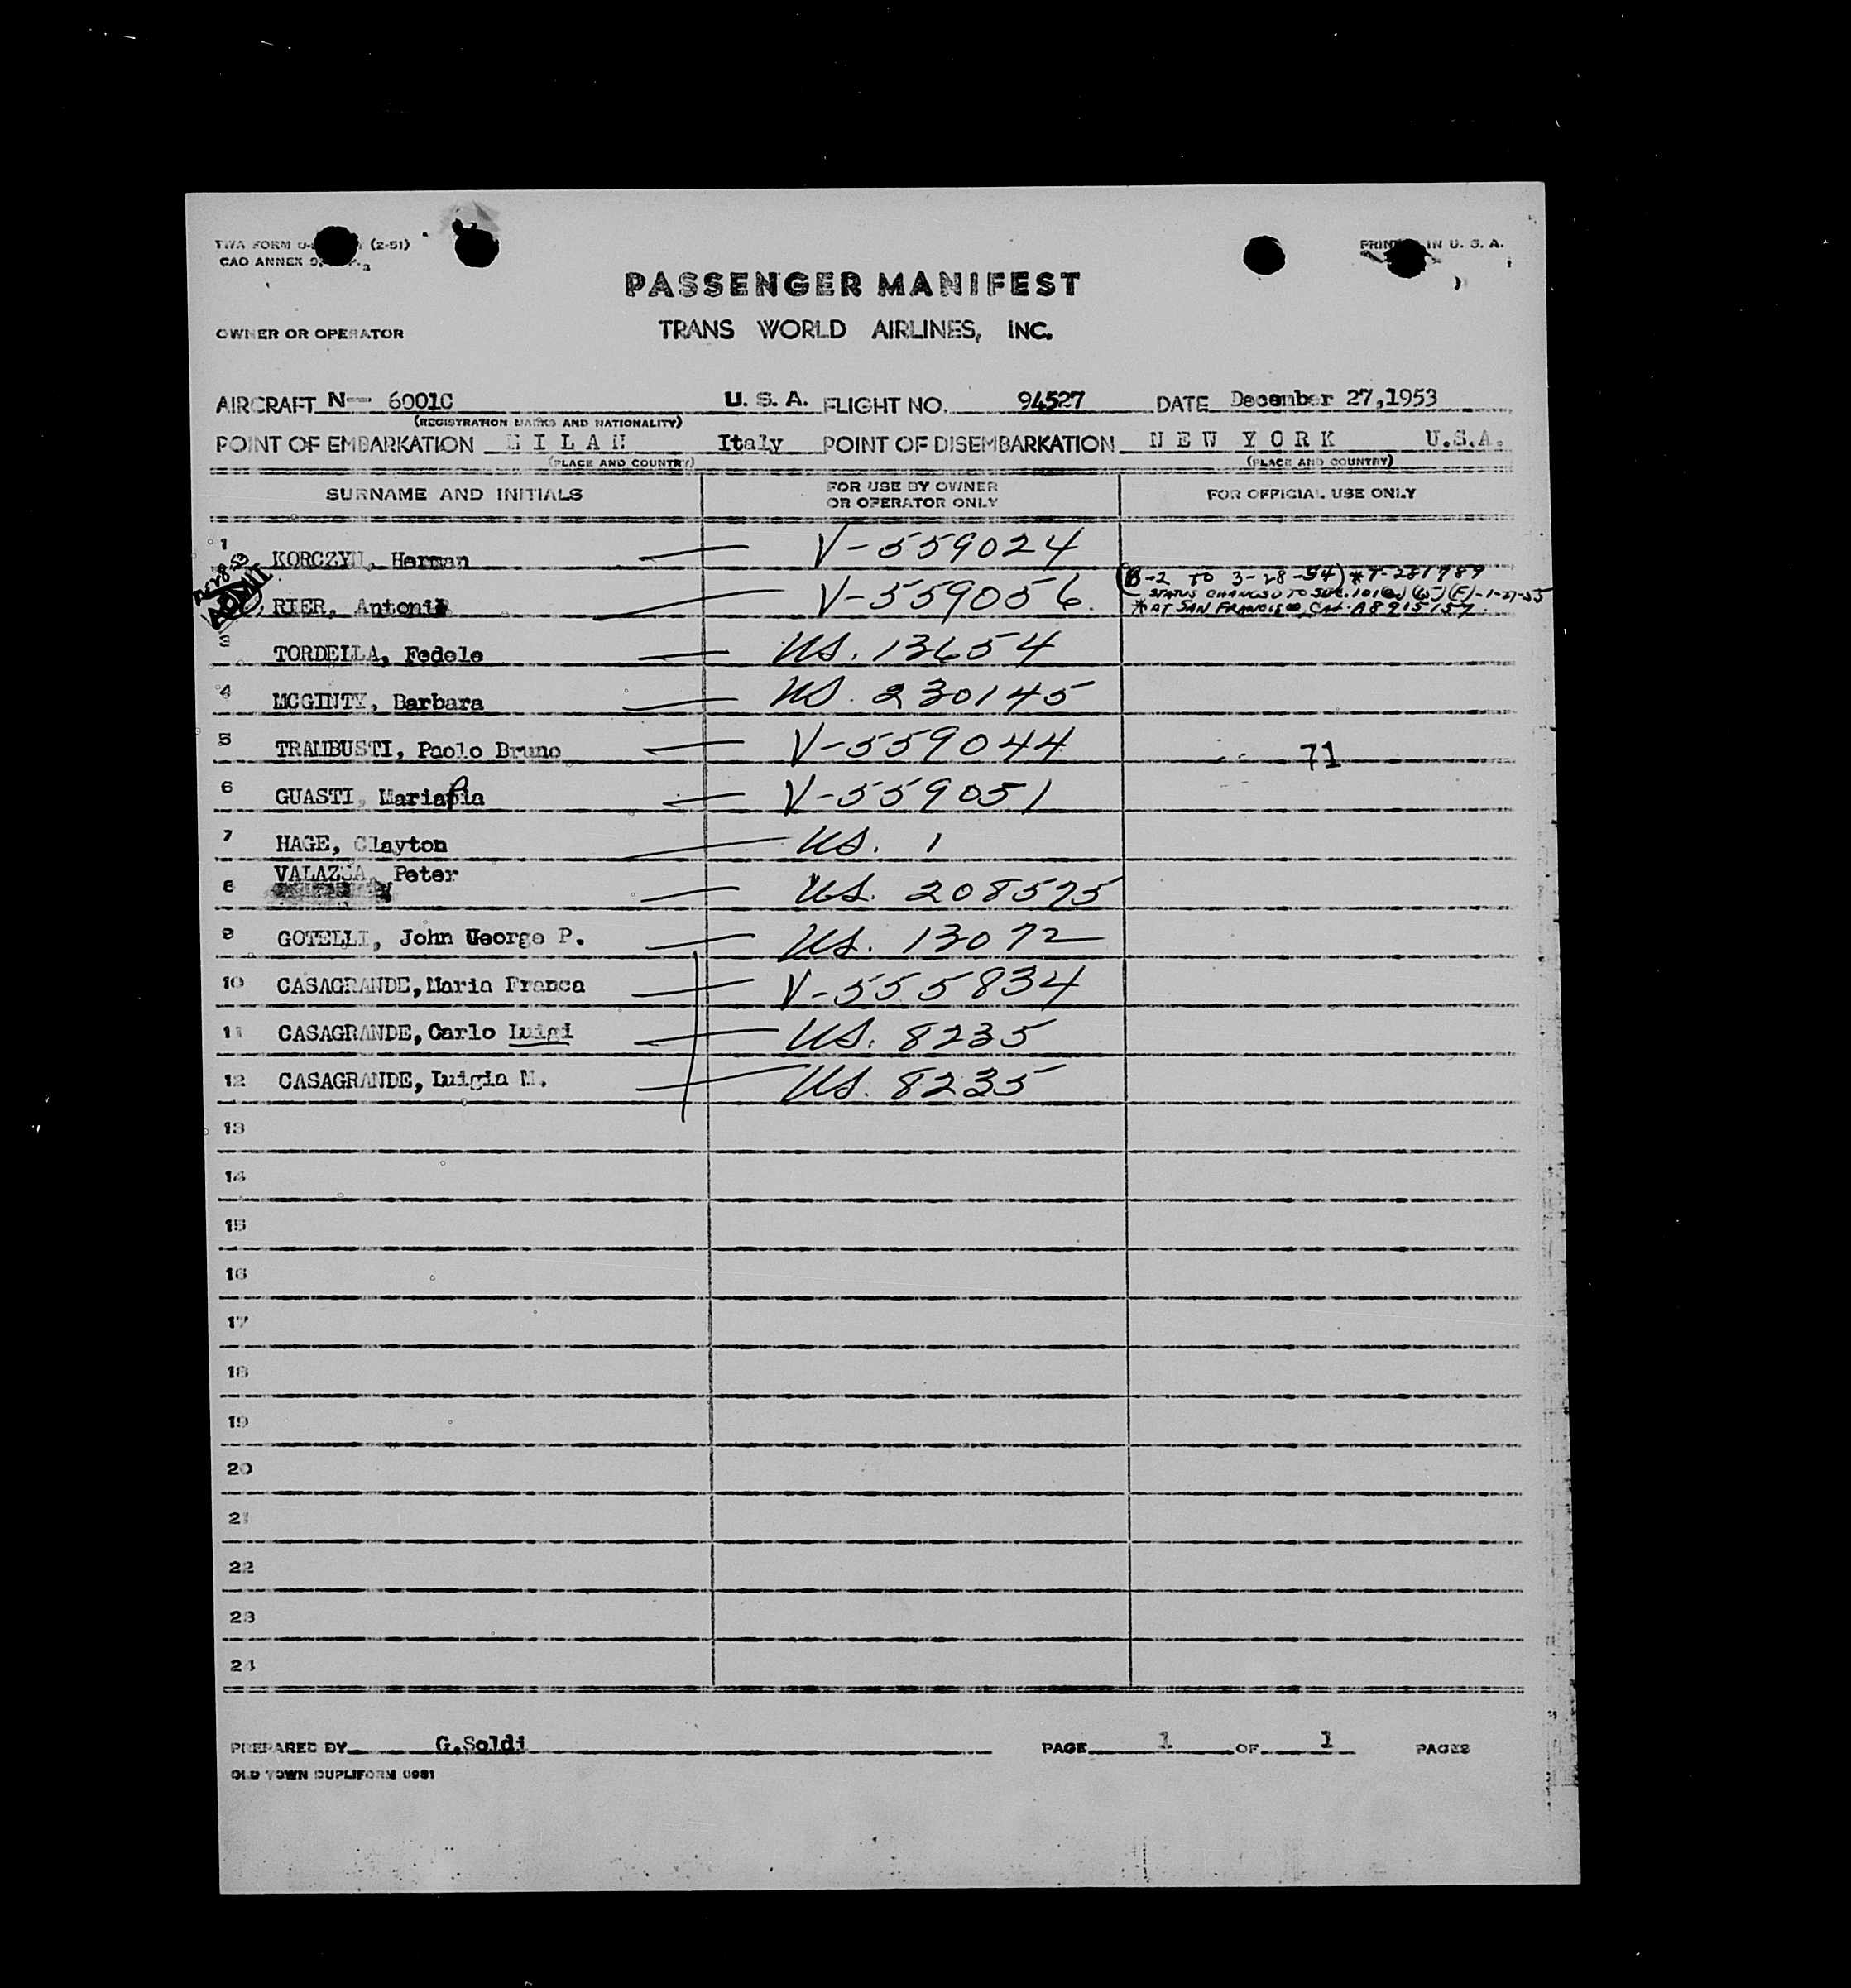 TWA FORM (2-51)
CAO ANNEX 9,
PRINTED IN U. S. A.
PASSENGER MANIFEST
OWNER OR OPERATOR TRANS WORLD AIRLINES, INC.
AIRCRAFT N-- 6001C U. S. A. FLIGHT NO. 94527 DATE December 27,1953
(REGISTRATION MARKS AND NATIONALITY)
POINT OF EMBARKATION M I L A N Italy POINT OF DISEMBARKATION N E W Y O R K U.S.A.
(PLACE AND COUNTRY) (PLACE AND COUNTRY)
SURNAME AND INITIALS FOR USE BY OWNER OR OPERATOR ONLY FOR OFFICIAL USE ONLY
1 KORCZYN, Herman V-559024
ADMIT RIER, V-559056 (B-2 TO 3-28-54) *T-281789
STATUS CHANGED TO SEC. 101(a)(15)(F)-1-27-55
*AT SAN FRANCISCO, CAL. A8915157
3 TORDELLA, Fedele US. 13654
4 MCGINTY, Barbara US. 230145
5 TRAMBUSTI, Paolo Bruno V-559044 71
6 GUASTI, Mariapia V-559051
7 HAGE, Clayton US. 1
8 Peter US. 208575
9 GOTELLI, John George P. US. 13072
10 CASAGRANDE, Maria Franca V-555834
11 CASAGRANDE, Carlo Luigi US. 8235
12 CASAGRANDE, Luigia M. US. 8235
13
14
15
16
17
18
19
20
21
22
23
24
PREPARED BY G.Soldi PAGE 1 OF 1 PAGES
OLD TOWN DUPLIFORM 0981